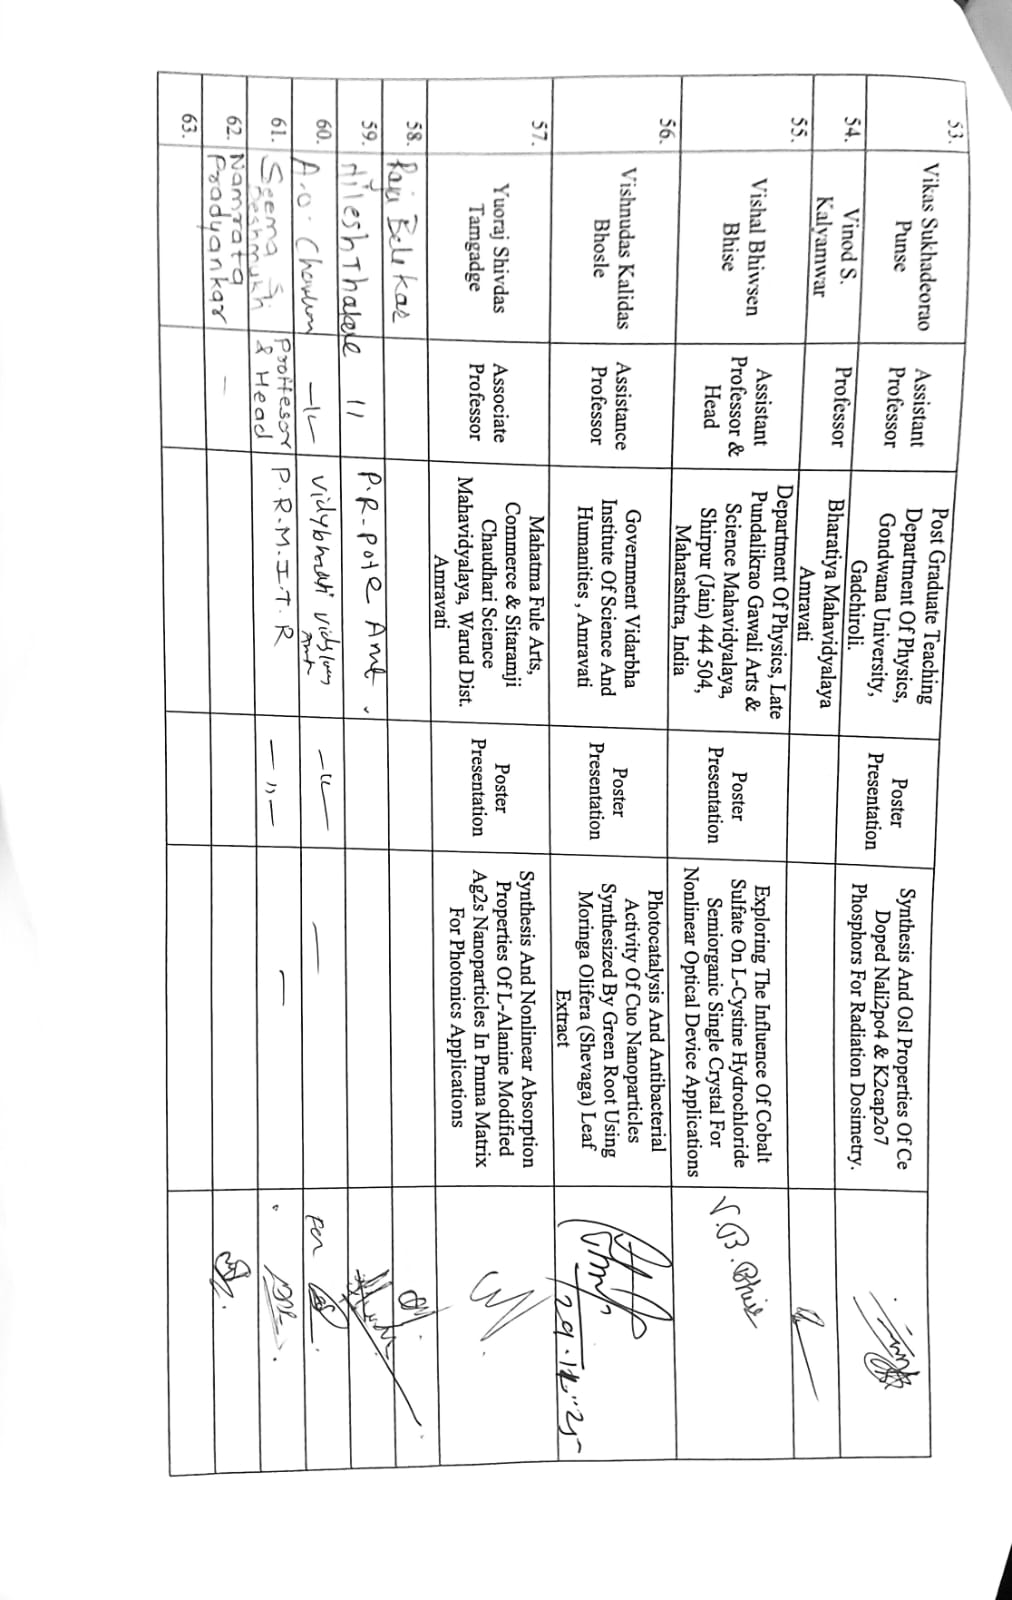 53.
Vikas Sukhadeorao
Punse
Assistant
Professor
Post Graduate Teaching
Department Of Physics,
Gondwana University,
Gadchiroli.
Poster
Presentation
Synthesis And Osl Properties Of Ce
Doped Nali2po4 & K2cap2o7
Phosphors For Radiation Dosimetry.
54.
Vinod S.
Kalyamwar
Professor
Bharatiya Mahavidyalaya
Amravati
55.
Vishal Bhiwsen
Bhise
Assistant
Professor &
Head
Department Of Physics, Late
Pundalikrao Gawali Arts &
Science Mahavidyalaya,
Shirpur (Jain) 444 504,
Maharashtra, India
Poster
Presentation
Exploring The Influence Of Cobalt
Sulfate On L-Cystine Hydrochloride
Semiorganic Single Crystal For
Nonlinear Optical Device Applications
V.B. Bhise
56.
Vishnudas Kalidas
Bhosle
Assistance
Professor
Government Vidarbha
Institute Of Science And
Humanities , Amravati
Poster
Presentation
Photocatalysis And Antibacterial
Activity Of Cuo Nanoparticles
Synthesized By Green Root Using
Moringa Olifera (Shevaga) Leaf
Extract
57.
Yuoraj Shivdas
Tamgadge
Associate
Professor
Mahatma Fule Arts,
Commerce & Sitaramji
Chaudhari Science
Mahavidyalaya, Warud Dist.
Amravati
Poster
Presentation
Synthesis And Nonlinear Absorption
Properties Of L-Alanine Modified
Ag2s Nanoparticles In Pmma Matrix
For Photonics Applications
58.
Raju Belekar
59.
Nilesh Thakare
11
P.R. Pote Amt.
60.
61.
Seema S.
Deshmukh
Proffesor
& Head
P.R.M.I.T.R
62.
Namrata
Pradyankar
63.